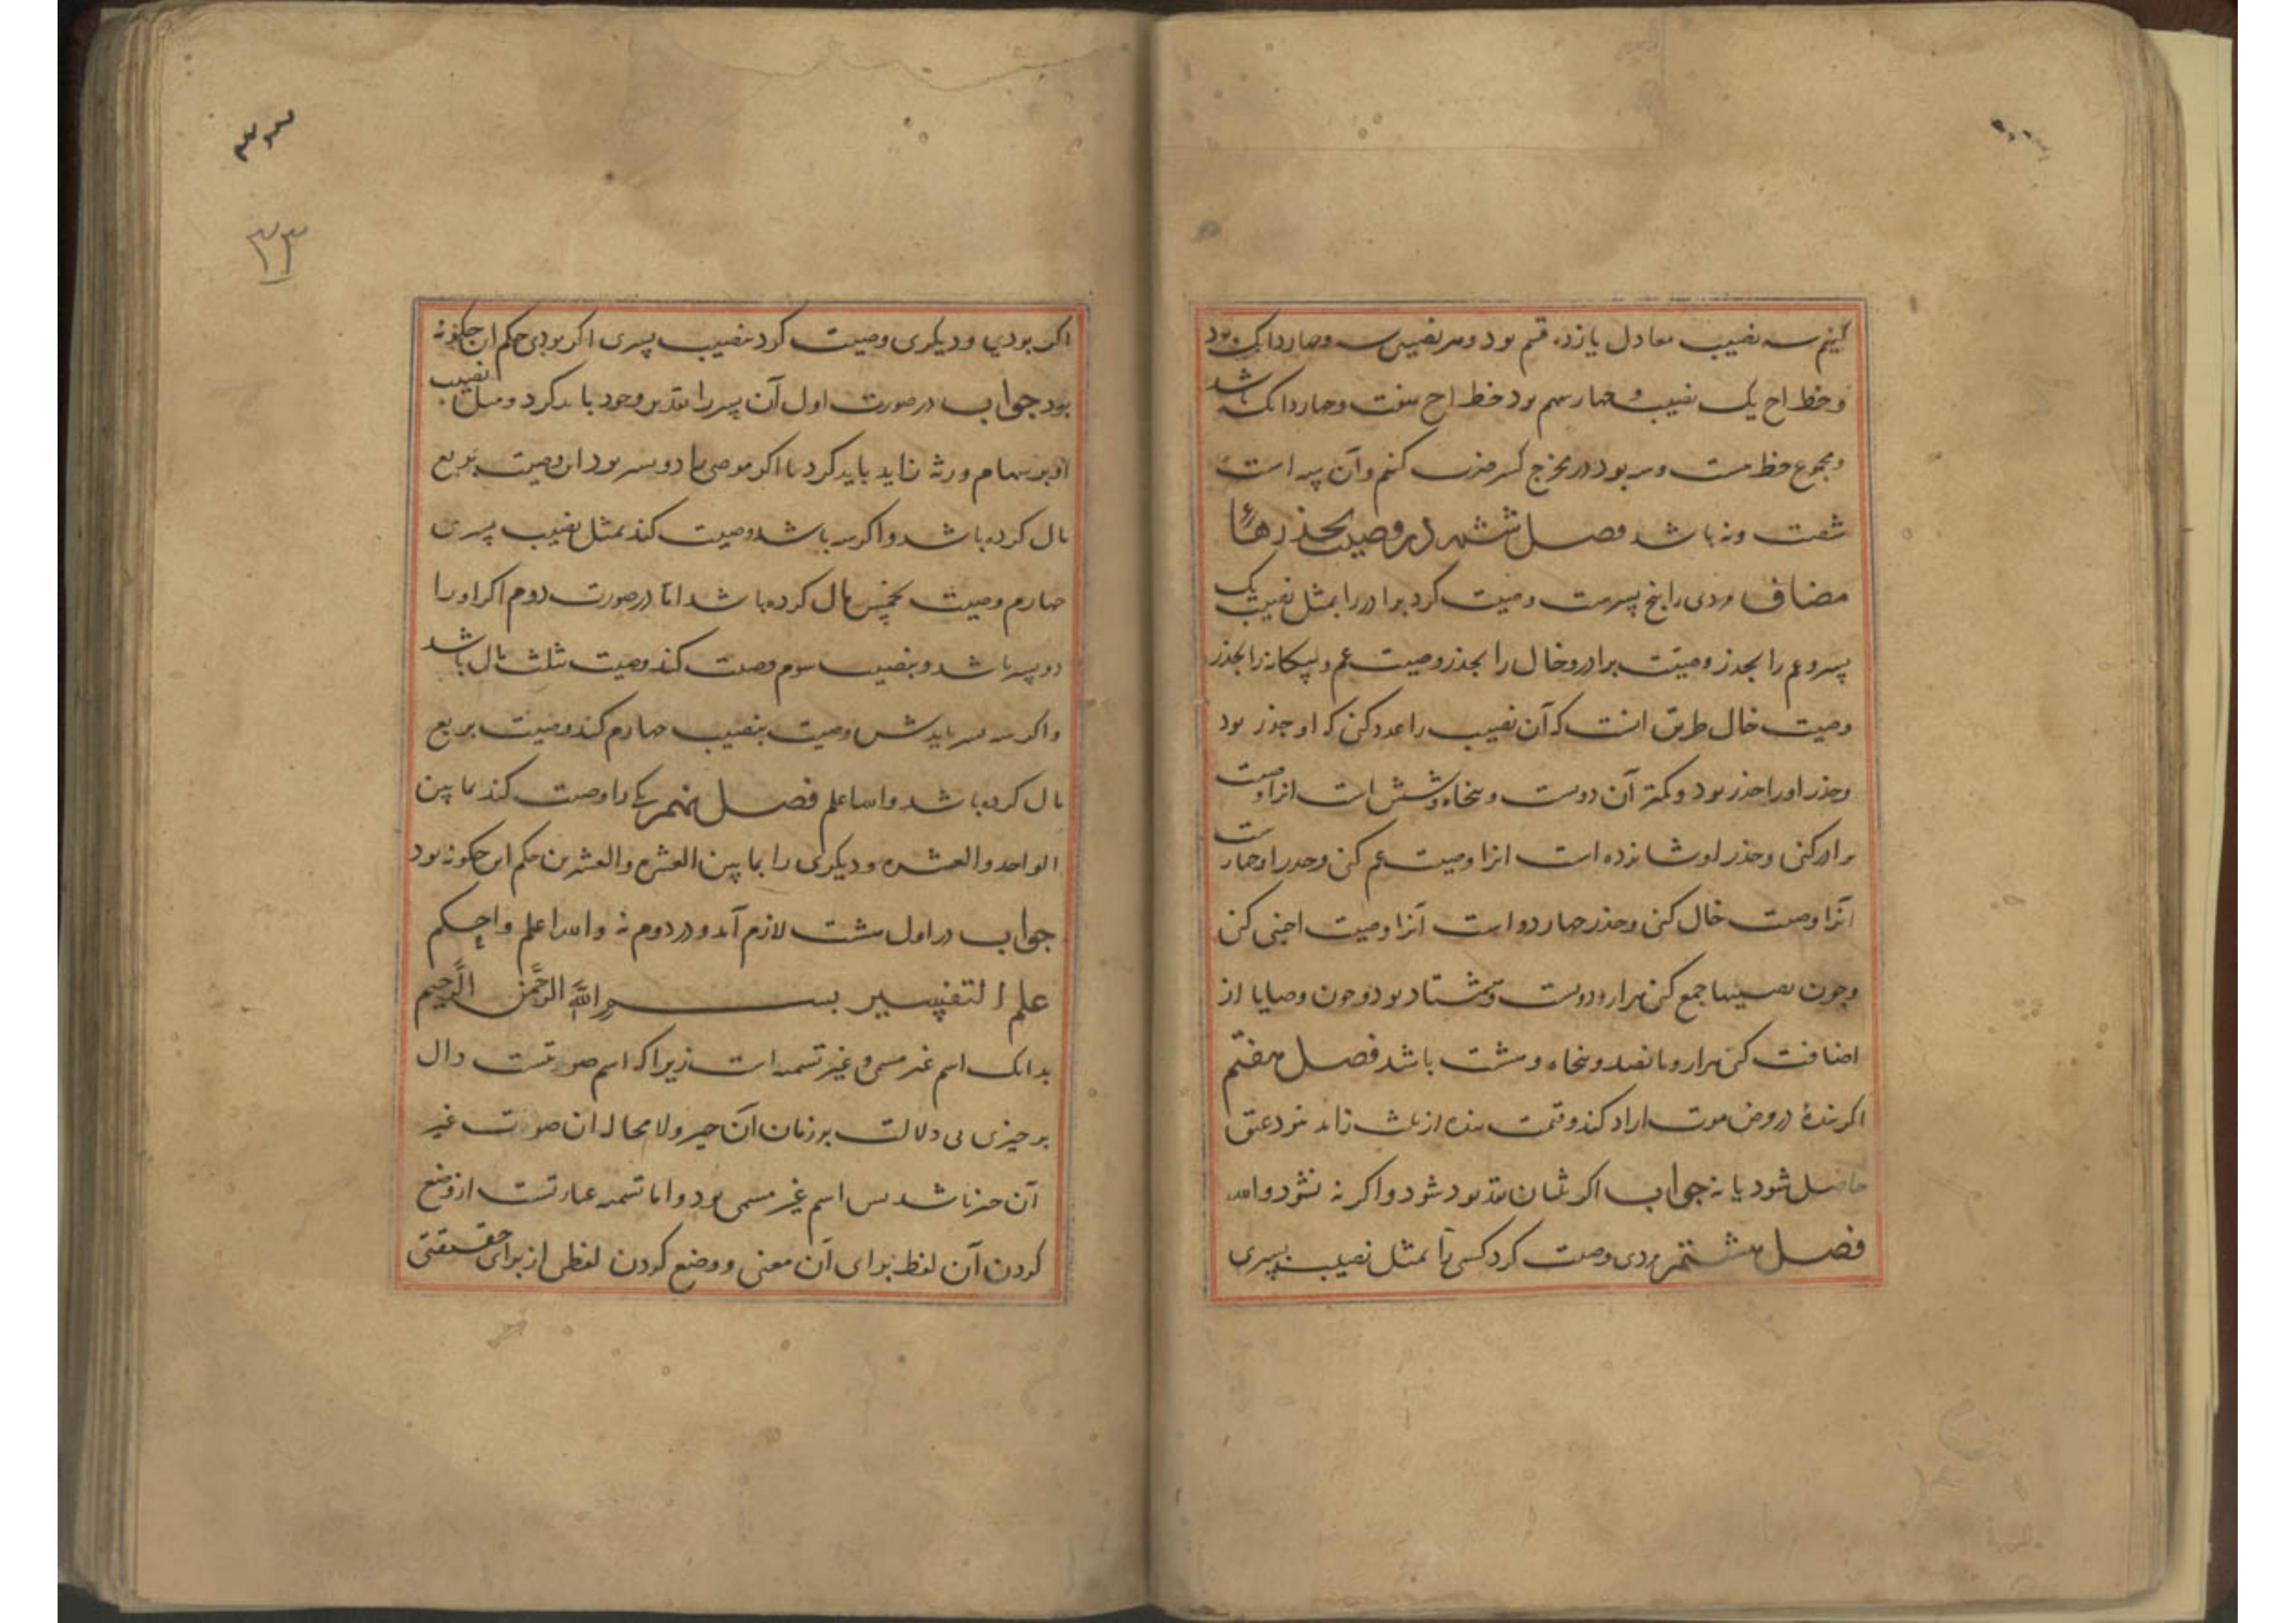 کنیم سه نصیب معادل یازده قسم بود و هر نصیبی سه و چهار دانک بود
و حظ اخ یک نصیب و چهار سهم بود حظ اخ هفت و چهار دانک باشد
و مجموع حظ بیست و سه بود در مخرج کسر ضرب کنیم و آن سه است
شصت و نه باشد فصل ششم در وصیت بجذرهاء
مضاف مردی را پنج پسرست وصیت کرد برادر را بمثل نصیب یک
پسر و عم را بجذر وصیت برادر و خال را بجذر وصیت عم و بیکانه را بجذر
وصیت خال طریق آنست که آن نصیب را عدد کنی که او جذر بود
و جذر او را جذر بود و کمتر آن دویست و پنجاه و شش است انرا وصیت
برادر کنی و جذر او شانزده است انرا وصیت عم کنی و جذر او چهارست
آنرا وصیت خال کنی و جذر چهار دو است آنرا وصیت اجنبی کنی
و چون نصیبها جمع کنی هزار و دویست و هشتاد بود و چون وصایا از
اضافت کنی هزار و پانصد و پنجاه و هشت باشد فصل هفتم
اکر بندهٔ در مرض موت ازاد کند و قیمت بنده از ثلث زاید بود عتق
حاصل شود یا نه جواب اکر شان نقد بود شود و اکر نه نشود والله
فصل هشتم مردی وصیت کرد کسی را بمثل نصیب پسری
۳۳
اکر بودی و دیکری وصیت کرد بنصیب پسری اکر بودی حکم ان چکونه
بود جواب در صورت اول آن پسر را تقدیر وجود باید کرد و مثل نصیب
او بر سهام ورثه زاید باید کرد تا اکر موصی را دو پسر بود این وصیت بربع
مال کرده باشد و اکر سه باشد وصیت کند بمثل نصیب پسری
چهارم وصیت بخمس مال کرده باشد اما در صورت دوم اکر او را
دو پسر باشد و بنصیب سوم وصیت کند وصیت بثلث مال باشد
و اکر سه پسر باشدش وصیت بنصیب چهارم کند وصیت بربع
مال کرده باشد والله اعلم فصل نهم یکی را وصیت کند بما بین
الواحد والعشره و دیکری را بما بین العشره والعشرین حکم این چکونه بود
جواب در اول هشت لازم آید و در دوم نه والله اعلم واحکم
علم التفسیر بسم الله الرحمن الرحیم
بدانک اسم غیر مسمی و غیر تسمیه است زیرا که اسم صوتیست دال
بر چیزی بی دلالت بر زمان آن چیز و لا محال ان صوت غیر
آن چیز باشد پس اسم غیر مسمی بود و اما تسمیه عبارتست از وضع
کردن آن لفظ برای آن معنی و وضع کردن لفظی از برای حقیقتی